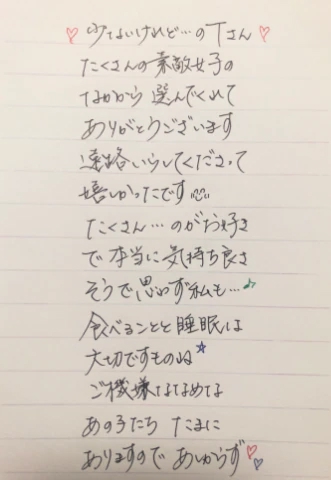 ♡ 少ないけれど…の Tさん ♡
たくさんの素敵女子の
なかから 選んでくれて
ありがとうございます
連絡いらしてくださって
嬉しかったです
たくさん…のがお好き
で 本当に気持ち良さ
そうで思わず私も…♪
食べることと睡眠は
大切ですものね☆
ご機嫌ななめな
あの子たち たまに
おりますので あしからず♡♡